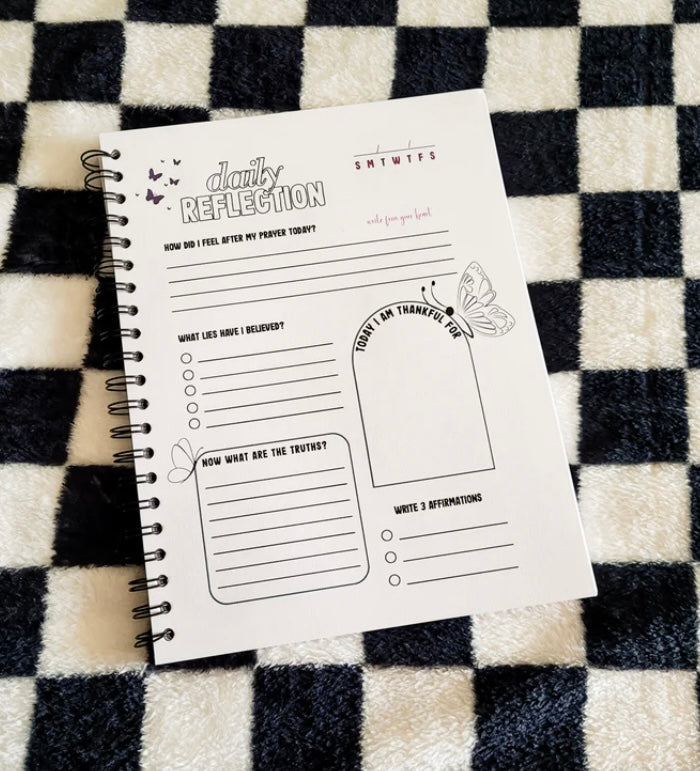 daily
REFLECTION
S M T W T F S
write from your heart
HOW DID I FEEL AFTER MY PRAYER TODAY?
WHAT LIES HAVE I BELIEVED?
TODAY I AM THANKFUL FOR
NOW WHAT ARE THE TRUTHS?
WRITE 3 AFFIRMATIONS